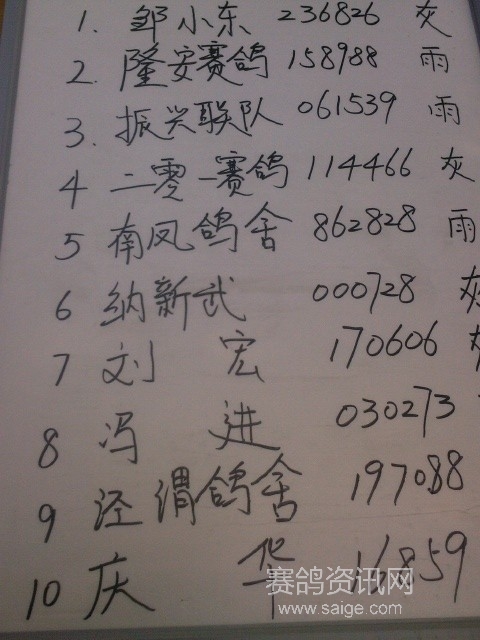 1. 邹小东 236826 灰
2. 隆安赛鸽 158988 雨
3. 振兴联队 061539 雨
4 二零一赛鸽 114466 灰
5 南凤鸽舍 862828 雨
6 纳新武 000728 灰
7 刘宏 170606
8 冯进 030273
9 泾渭鸽舍 197088
10 庆华
赛鸽资讯网
www.saige.com